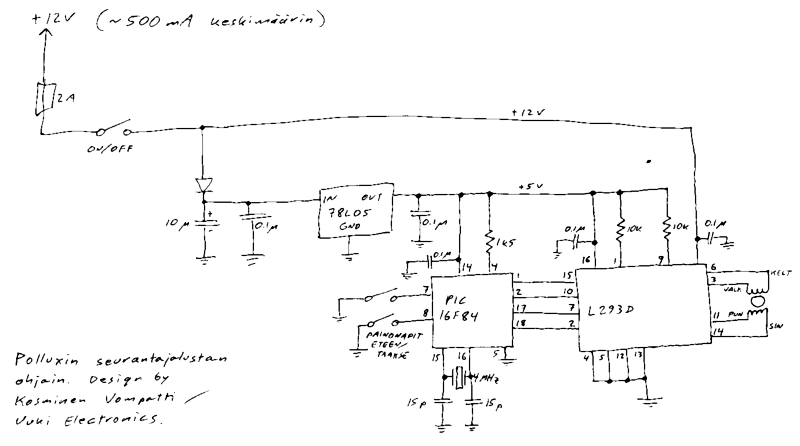 +12V (~500mA keskimäärin)
2A
ON/OFF
+12V
IN OUT
78L05
GND
+5V
10µ
0.1µ
0.1µ
0.1µ
1k5
0.1µ
10k
10k
0.1µ
14 4
16 1 9
7
8
PIC
16F84
1
2
17
18
15 16 5
15
10
7
2
L293D
6
3
11
14
4 5 12 13
KELT
VALK
PUN
SIN
PAINONAPIT
ETEEN/
TAAKSE
4MHz
15p
15p
Polluxin seurantajalustan
ohjain. Design by
Kosminen Vompatti /
Vuki Electronics.